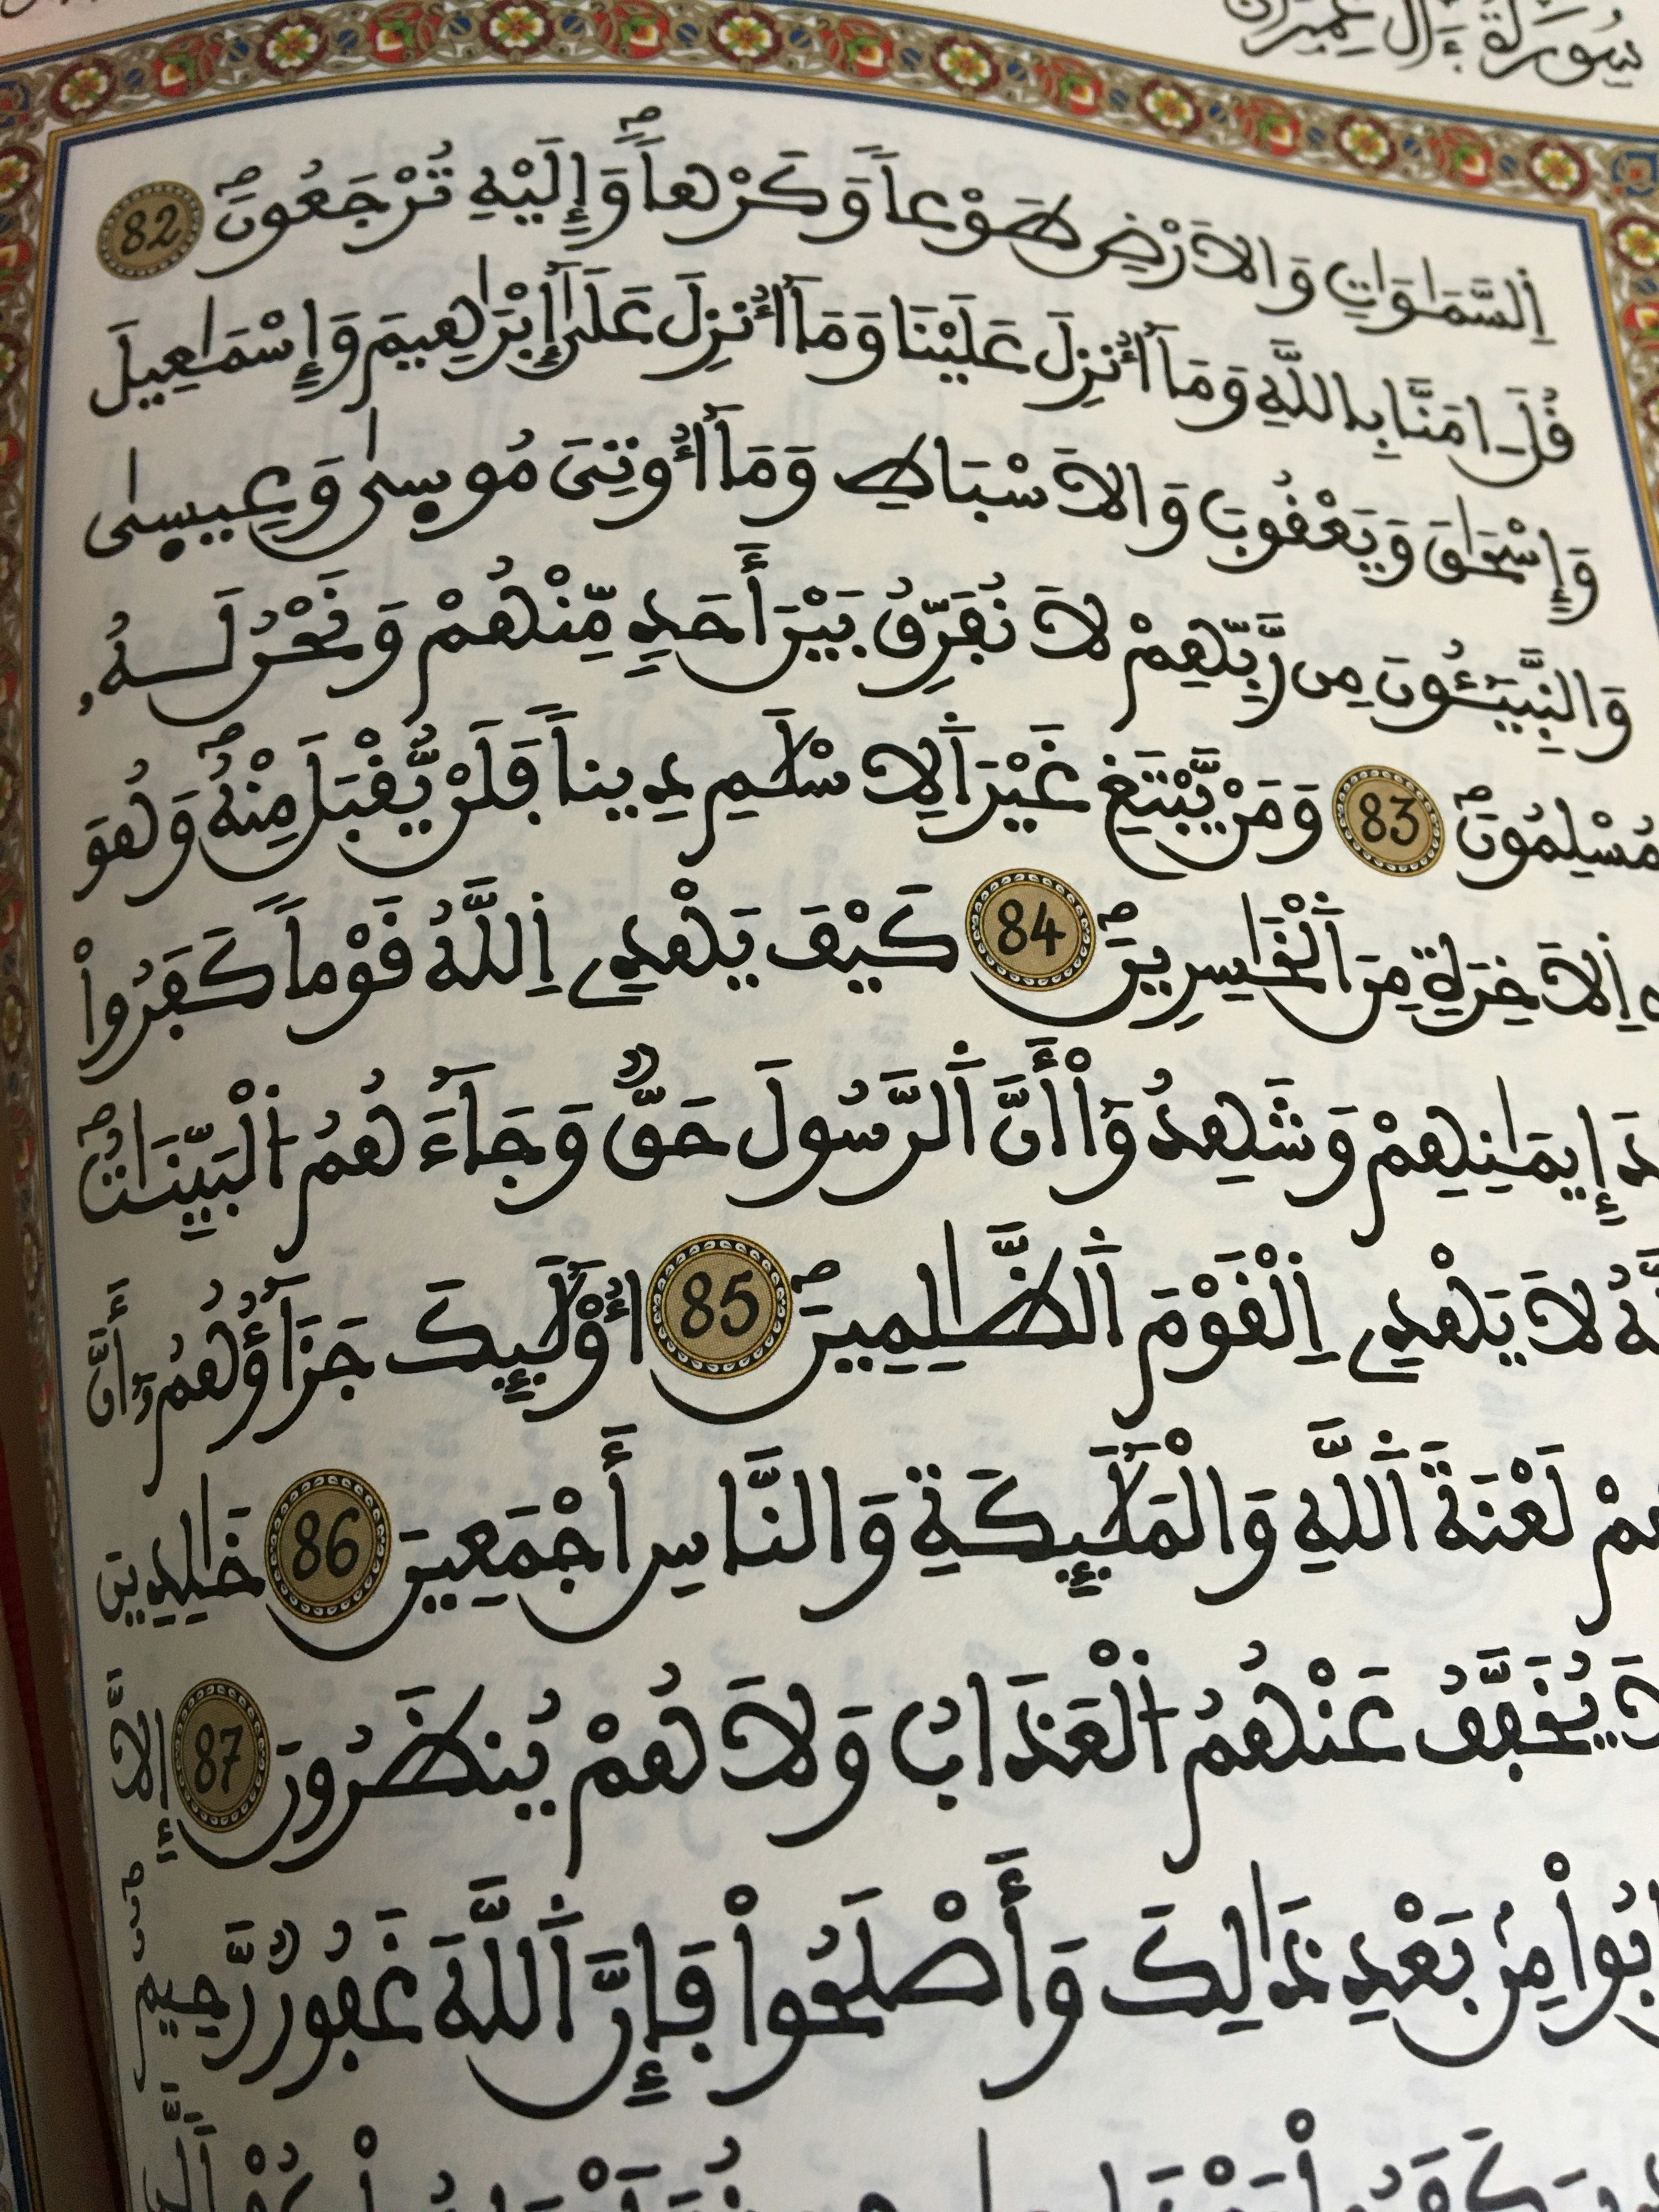 سُورَةُ ءَالِ عِمْرَانَ
اِ۬لسَّمَٰوَٰتِ وَالَارْضِ طَوْعاٗ وَكَرْهاٗۖ وَإِلَيْهِ تُرْجَعُونَۖ 82
قُلَ اٰمَنَّا بِاللَّهِ وَمَآ أُنزِلَ عَلَيْنَا وَمَآ أُنزِلَ عَلَىٰٓ إِبْرَٰهِيمَ وَإِسْمَٰعِيلَ
وَإِسْحَٰقَ وَيَعْقُوبَ وَالَاسْبَاطِ وَمَآ أُوتِىَ مُوسِىٰ وَعِيسِىٰ
وَالنَّبِيٓـُٔونَ مِن رَّبِّهِمْ لَا نُفَرِّقُ بَيْنَ أَحَدٖ مِّنْهُمْ وَنَحْنُ لَهُۥ
مُسْلِمُونَۖ 83 وَمَنْ يَّبْتَغِ غَيْرَ اَ۬لِاسْلَٰمِ دِيناٗ فَلَنْ يُّقْبَلَ مِنْهُۖ وَهُوَ
اِ۬لَاخِرَةِ مِنَ اَ۬لْخَٰسِرِينَۖ 84 كَيْفَ يَهْدِے اِ۬للَّهُ قَوْماٗ كَفَرُواْ
إِيمَٰنِهِمْ وَشَهِدُوٓاْ أَنَّ اَ۬لرَّسُولَ حَقّٞ وَجَآءَهُمُ اُ۬لْبَيِّنَٰتُۖ
لَا يَهْدِے اِ۬لْقَوْمَ اَ۬لظَّٰلِمِينَۖ 85 أُوْلَٰٓئِكَ جَزَآؤُهُمُۥٓ أَنَّ
لَعْنَةَ اَ۬للَّهِ وَالْمَلَٰٓئِكَةِ وَالنَّاسِ أَجْمَعِينَ 86 خَٰلِدِينَ
لَا يُخَفَّفُ عَنْهُمُ اُ۬لْعَذَابُ وَلَا هُمْ يُنظَرُونَ 87 إِلَّا
مِنۢ بَعْدِ ذَٰلِكَ وَأَصْلَحُواْ فَإِنَّ اَ۬للَّهَ غَفُورٞ رَّحِيمٌۖ